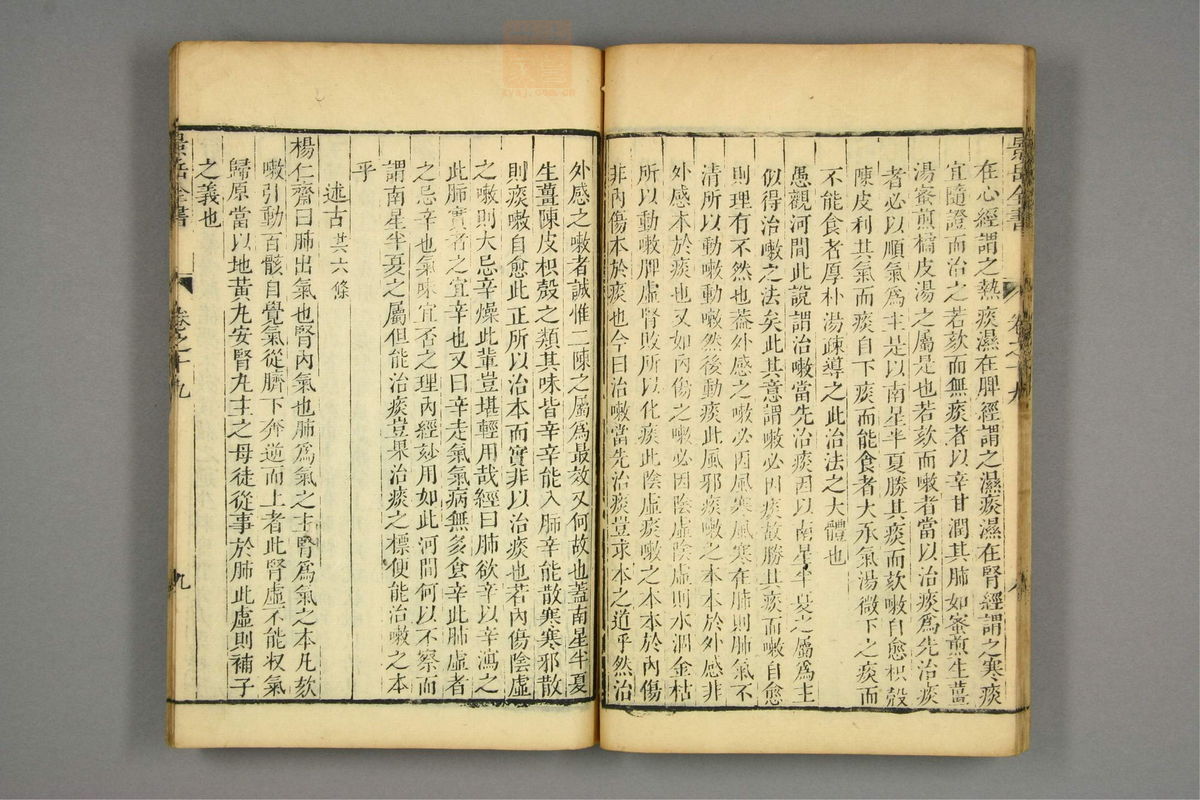 景岳全書
卷之十九
八
在心經謂之熱痰濕在脾經謂之濕痰濕在腎經謂之寒痰
宜隨證而治之若欬而無痰者以辛甘潤其肺如蜜煎生薑
湯蜜煎橘皮湯之屬是也若欬而嗽者當以治痰為先治痰
者必以順氣為主是以南星半夏勝其痰而欬嗽自愈枳殼
陳皮利其氣而痰自下痰而能食者大承氣湯微下之痰而
不能食者厚朴湯疎導之此治法之大體也
愚觀河間此說謂治嗽當先治痰因以南星半夏之屬為主
似得治嗽之法矣此其意謂嗽必因痰故勝其痰而嗽自愈
則理有不然也蓋外感之嗽必因風寒風寒在肺則肺氣不
清所以動嗽動嗽然後動痰此風邪痰嗽之本本於外感非
外感本於痰也又如內傷之嗽必因陰虛陰虛則水涸金枯
所以動嗽脾虛腎敗所以化痰此陰虛痰嗽之本本於內傷
非內傷本於痰也今曰治嗽當先治痰豈求本之道乎然治
外感之嗽者誠惟二陳之屬為最效又何故也蓋南星半夏
生薑陳皮枳殼之類其味皆辛辛能入肺辛能散寒寒邪散
則痰嗽自愈此正所以治本而實非以治痰也若內傷陰虛
之嗽則大忌辛燥此輩豈堪輕用哉經曰肺欲辛以辛瀉之
此肺實者之宜辛也又曰辛走氣氣病無多食辛此肺虛者
之忌辛也氣味宜否之理內經妙用如此河間何以不察而
謂南星半夏之屬但能治痰豈果治痰之標便能治嗽之本
乎
述古共六條
楊仁齋曰肺出氣也腎內氣也肺為氣之主腎為氣之本凡欬
嗽引動百骸自覺氣從臍下奔逆而上者此腎虛不能收氣
歸原當以地黃丸安腎丸主之母徒從事於肺此虛則補子
之義也
景岳全書
卷之十九
九